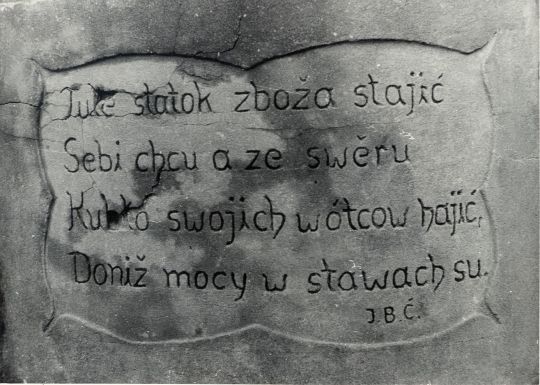 Tule statok zboža stajić
Sebi chcu a ze swěru
Kubło swojich wótcow hajić,
Doniž mocy w stawach su.
J.B.Ć.